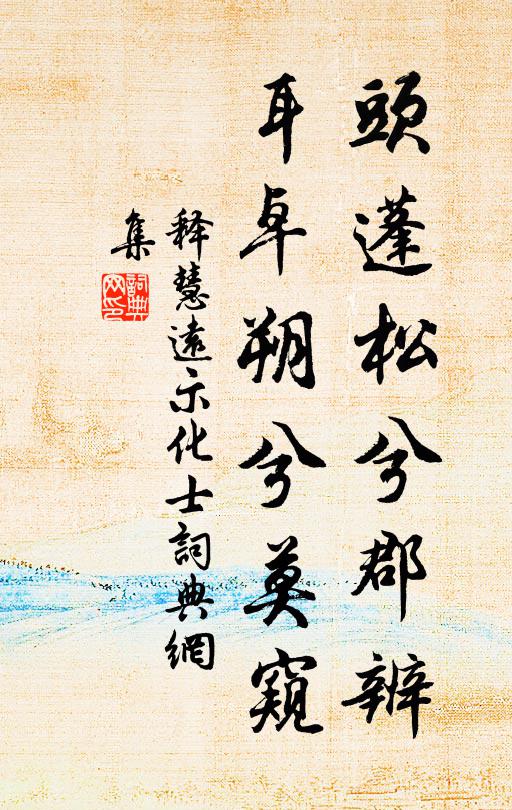 頭蓬松兮郡辨
耳卓朔兮莫窺
释慧遠示化士詞典網
集
詞典網印